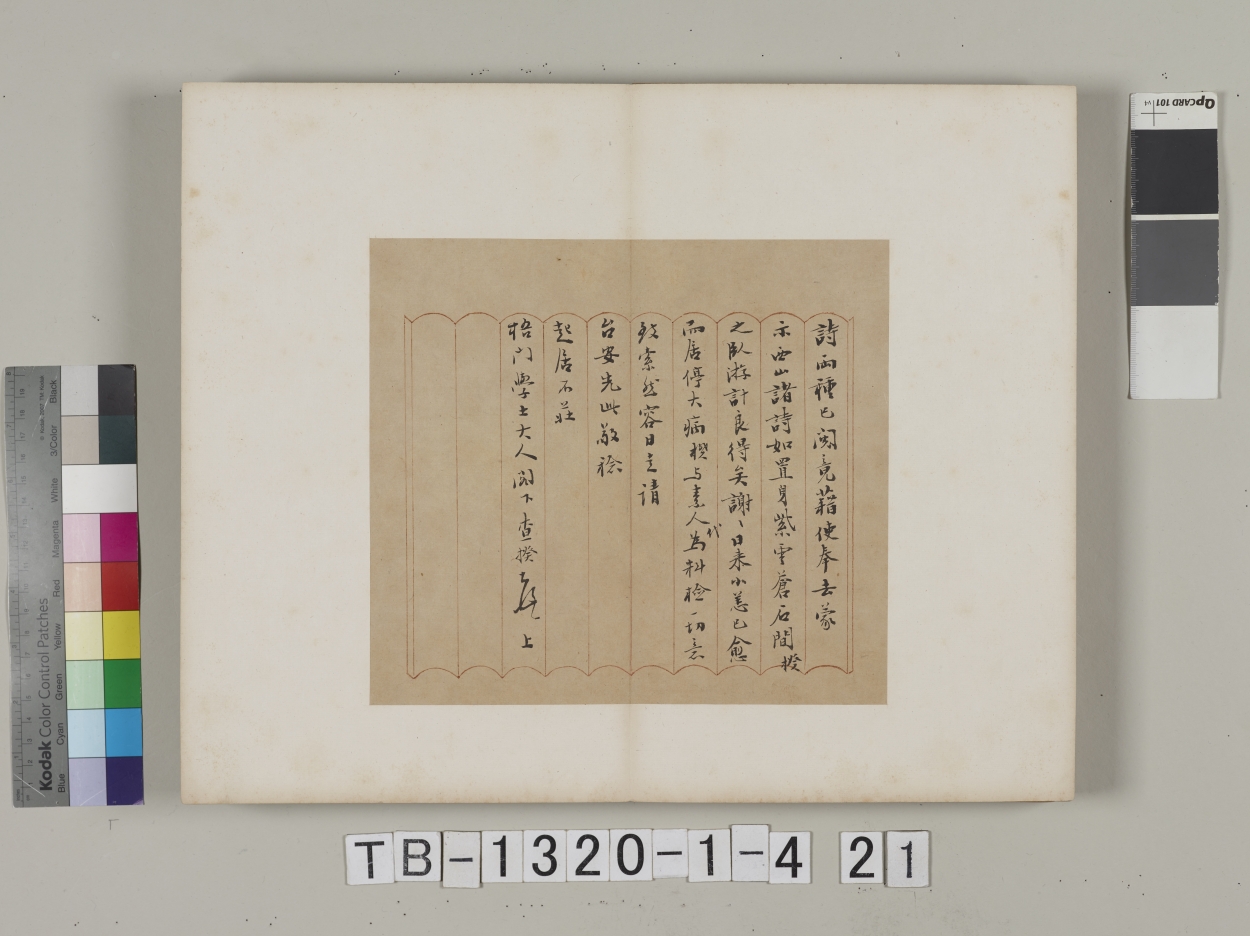 詩兩種已閱竟藉使奉去蒙
示西山諸詩如置身紫雲蒼石間揆
之臥游計良得矣謝〻日来小恙已愈
而居停大病揆与素人代為料檢一切意
致索然容日走請
台安先此敬
起居不莊
梧門學士大人閣下查揆 上
QPCARD 101 v4
Kodak Color Control Patches
© Kodak
Blue Cyan Green Yellow Red Magenta White 3/Color Black
TB-1320-1-4 21